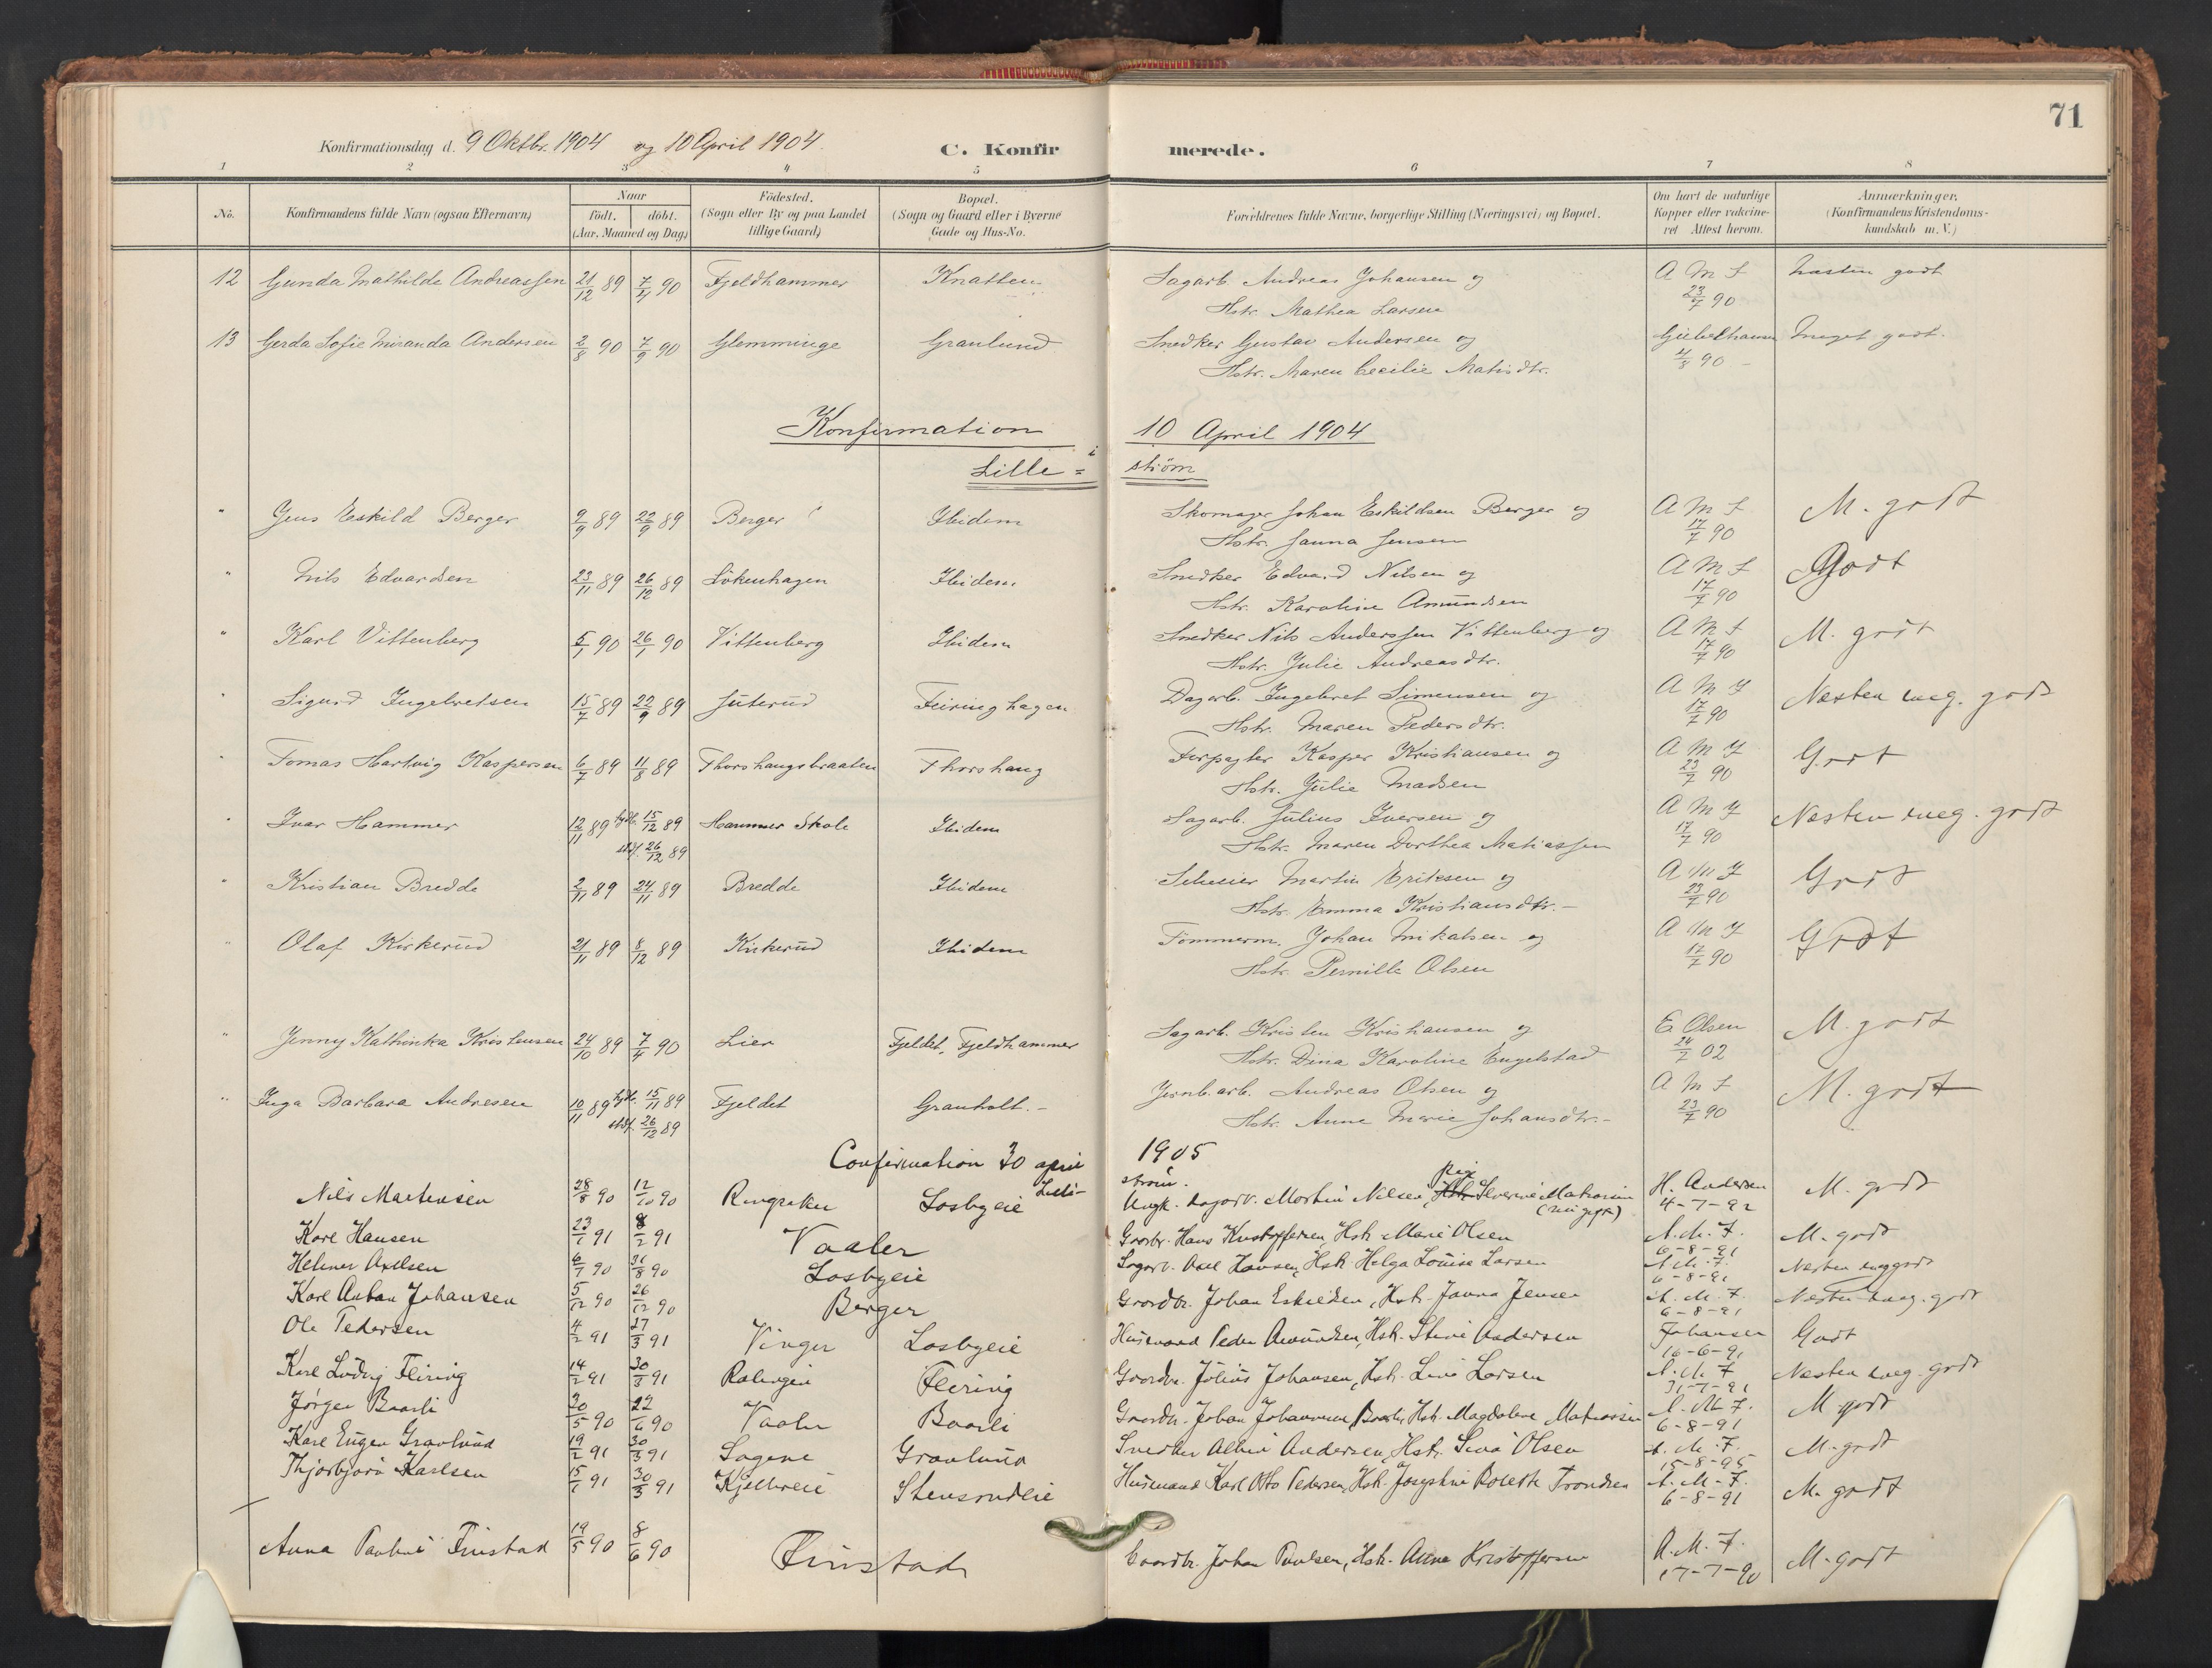 71
Konfirmationsdag d. 9 Oktbr. 1904 og 10 April 1904.
C. Konfirmerede.
1 2 3 4 5 6 7 8
No.
Konfirmandens fulde Navn (ogsaa Efternavn)
Naar
födt. döbt.
(Aar, Maaned og Dag)
Födested.
(Sogn eller By og paa Landet
tillige Gaard)
Bopæl.
(Sogn og Gaard eller i Byerne
Gade og Hus-No.
Forældrenes fulde Navne, borgerlige Stilling (Næringsvei) og Bopæl.
Om havt de naturlige
Kopper eller vakcine-
ret Attest herom.
Anmærkninger.
(Konfirmandens Kristendoms-
kundskab m. V.)
12 Gunda Mathilde Andreassen 21/12 89 7/4 90 Fjeldhammer Knatten Sagarb. Andreas Johansen og A M F Næsten godt
Hstr. Mathea Larsen 23/7 90
13 Gerda Sofie Miranda Andersen 2/8 90 7/9 90 Glemminge Granlund Snedker Gustav Andersen og Giebelhausen Meget godt.
Hstr. Maren Cecilie Matisdtr. 4/8 90 -
Konfirmation 10 April 1904
i
Lille= strøm
" Jens Eskild Berger 9/9 89 22/9 89 Berger Ibidem Skomager Johan Eskildsen Berger og A M F M. godt
Hstr. Janna Jensen 17/7 90
" Nils Edvardsen 23/11 89 26/12 89 Lökenhagen Ibidem Snedker Edvard Nilsen og A M F Godt
Hstr. Karoline Amundsen 17/7 90
" Karl Vittenberg 5/1 90 26/1 90 Vittenberg Ibidem Snedker Nils Anderssen Vittenberg og A M F M. godt
Hstr. Julie Andreasdtr. 17/7 90
" Sigurd Ingebretsen 15/7 89 22/9 89 Juterud Feiringhagen Dagarb. Ingebret Simensen og A M F Næsten meg. godt
Hstr. Maren Pedersdtr. 17/7 90
" Tomas Hartvig Kaspersen 6/7 89 11/8 89 Thorshaugbraaten Thorshaug Forpagter Kasper Kristiansen og A M F Godt
Hstr. Julie Madsen 23/7 90
" Ivar Hammer 12/11 89 hjdb. 15/12 89 Hammer Skole Ibidem Sagarb. Julius Iversen og A M F Næsten meg. godt
stdf. 26/12 89 Hstr. Maren Dorthea Matiassen 17/7 90
" Kristian Bredde 2/11 89 24/11 89 Bredde Ibidem Selveier Martin Eriksen og A M F Godt
Hstr. Emma Kristiansdtr. - 23/7 90
" Olaf Kirkerud 21/11 89 8/12 89 Kirkerud Ibidem Tømmerm. Johan Mikalsen og A M F Godt
Hstr. Pernille Olsen 17/7 90
" Jenny Kathinka Kristensen 24/10 89 7/4 90 Lier Fjeldet, Fjeldhammer Sagarb. Kristen Kristiansen og E. Olsen M. godt
Hstr. Dina Karoline Engelstad 24/7 02
" Inga Barbara Andresen 10/11 89 hjdb. 15/11 89 Fjeldet Granholt. - Jernb. arb. Andreas Olsen og A M F M. godt
stdf. 26/12 89 Hstr. Anne Marie Johansdtr. - 23/7 90
Confirmation 30 april 1905
Lille- strøm.
Nils Martinsen 28/8 90 12/10 90 Ringsaker Losbyeie Ungk. Dagarb. Martin Nilsen, Pig Severine Matiassen (nu gift) H. Andersen 4-7-92 M. godt
Kare Hansen 23/1 91 8/2 91 Vaaler Gaardbr. Hans Kristoffersen, Hstr. Marie Olsen A. M. F. 6-8-91 M. godt
Helmer Axelsen 6/7 90 31/8 90 Losbyeie Sagarb. Axel Hansen, Hstr. Helga Louise Larsen A. M. F. 6-8-91 Næsten meg godt
Kare Anton Johansen 5/12 90 26/12 90 Berger Gaardbr. Johan Eskildsen, Hstr. Janna Jensen A. M. F. 6-8-91 Næsten meg. godt
Ole Pedersen 4/2 91 27/3 91 Vinger Losbyeie Husmand Peder Amundsen, Hstr. Stine Andersen Johansen 16-6-91 Godt
Karl Ludvig Flering 14/2 91 30/3 91 Ralingen Flering Gaardbr. Julius Johansen, Hstr. Line Larsen A. M. F 31-7-91 Næsten meg. godt
Jørgen Baarli 30/5 90 22/6 90 Vaaler Baarli Gaardbr. Johan Johannesen Baarli, Hstr. Magdalene Matiassen A. M. F. 6-8-91 M godt
Karl Eugen Granlund 19/2 91 30/3 91 Sagene Granlund Snedker Albin Andersen, Hstr. Lina Olsen A. M. F. 15-8-95 M. godt
Thjorbjørn Karlsen 15/1 91 30/3 91 Kjellereie Stensrudeie Husmand Karl Otto Pedersen, Hstr. Josephine Bolette Trondsen A. M. F. 6-8-91 M. godt
Anna Pauline Finstad 19/5 90 8/6 90 Finstad Gaardbr. Johan Paulsen, Hstr. Anna Kristoffersen A. M. F. 17-7-90 M. godt